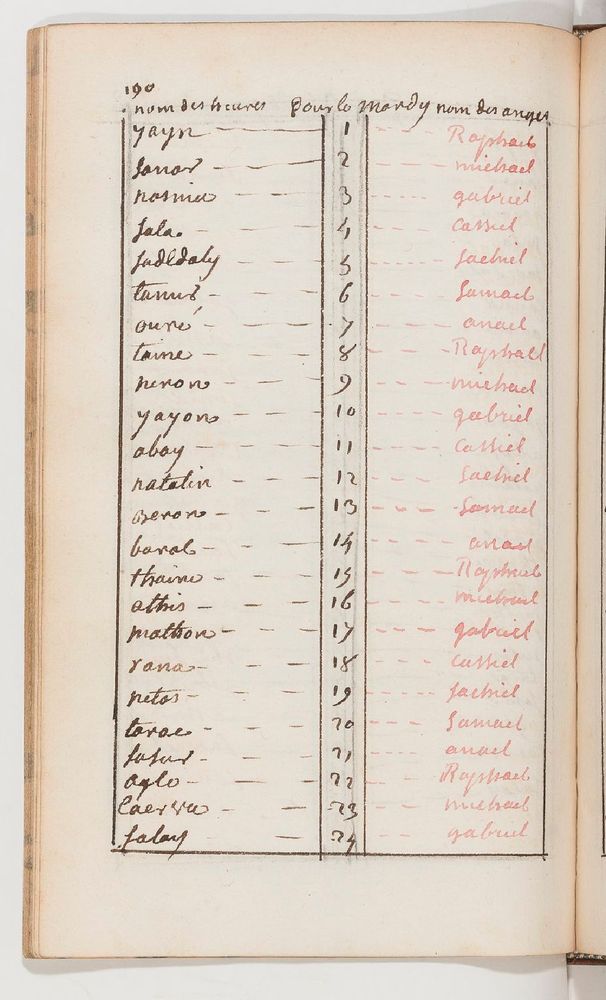 190
nom des heures pour le mardy nom des anges
yayn 1 Raphael
Janor 2 michael
nasnia 3 gabriel
Sala 4 Cassiel
Sadedaly 5 Sachiel
tamus 6 Samael
ouré 7 anael
taine 8 Raphall
neron 9 michael
yayon 10 gabriel
abay 11 Cassiel
natalin 12 Sachiel
beron 13 Samael
barol 14 anael
thaine 15 Raphael
athis 16 michael
mathon 17 gabriel
rana 18 cassiel
netos 19 Sachiel
tarac 20 Samael
Sasur 21 anael
aglo 22 Raphael
Caerra 23 michael
Salay 24 gabriel